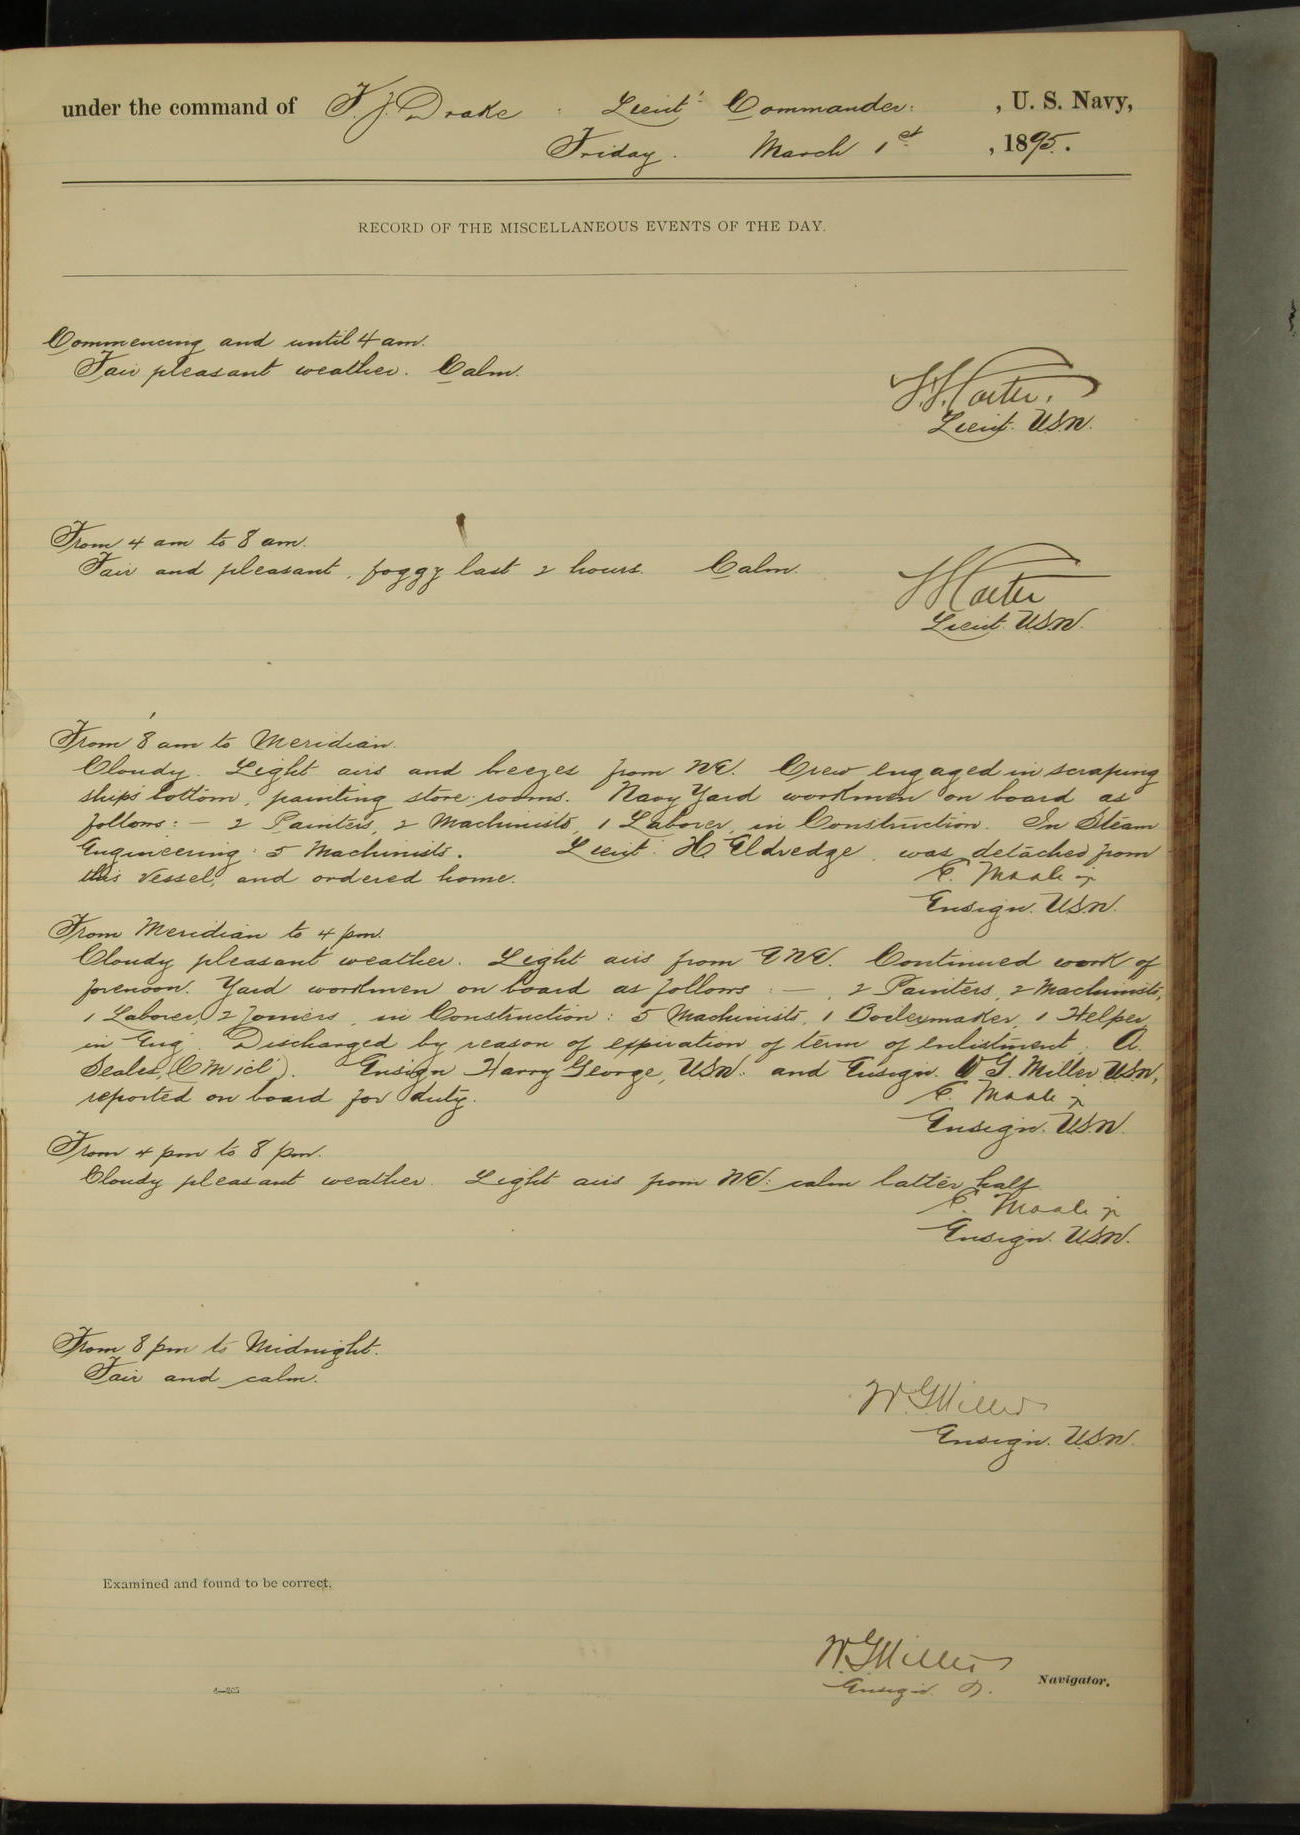 under the command of F. J. Drake : Lieut. Commander. , U. S. Navy,
Friday. March 1st , 1895.
RECORD OF THE MISCELLANEOUS EVENTS OF THE DAY.
Commencing and until 4 am.
Fair pleasant weather. Calm.
Lieut. U.S.N.
From 4 am to 8 am.
Fair and pleasant, foggy last 2 hours. Calm.
Lieut. U.S.N.
From 8 am to Meridian.
Cloudy. Light airs and breezes from NE. Crew engaged in scraping
ship's bottom, painting store-rooms. Navy Yard workmen on board as
follows: — 2 Painters, 2 Machinists, 1 Laborer, in Construction. In Steam
Engineering: 5 Machinists. Lieut. H Eldredge, was detached from
this vessel, and ordered home.
E. Moale jr
Ensign. U.S.N.
From Meridian to 4 pm.
Cloudy pleasant weather. Light airs from ENE. Continued work of
forenoon. Yard workmen on board as follows: —, 2 Painters, 2 Machinists,
1 Laborer, 2 Joiners, in Construction: 5 Machinists, 1 Boilermaker, 1 Helper
in Eng. Discharged by reason of expiration of term of enlistment, A.
Ensign Harry George, USN. and Ensign. W G. Miller U.S.N,
reported on board for duty.
E. Moale jr
Ensign. U.S.N.
From 4 pm to 8 pm.
Cloudy pleasant weather. Light airs from NE: calm latter half
E. Moale jr
Ensign. U.S.N.
From 8 pm to Midnight.
Fair and calm.
W. G. Miller
Ensign. U.S.N.
Examined and found to be correct.
W. G. Miller
Ensign Navigator.